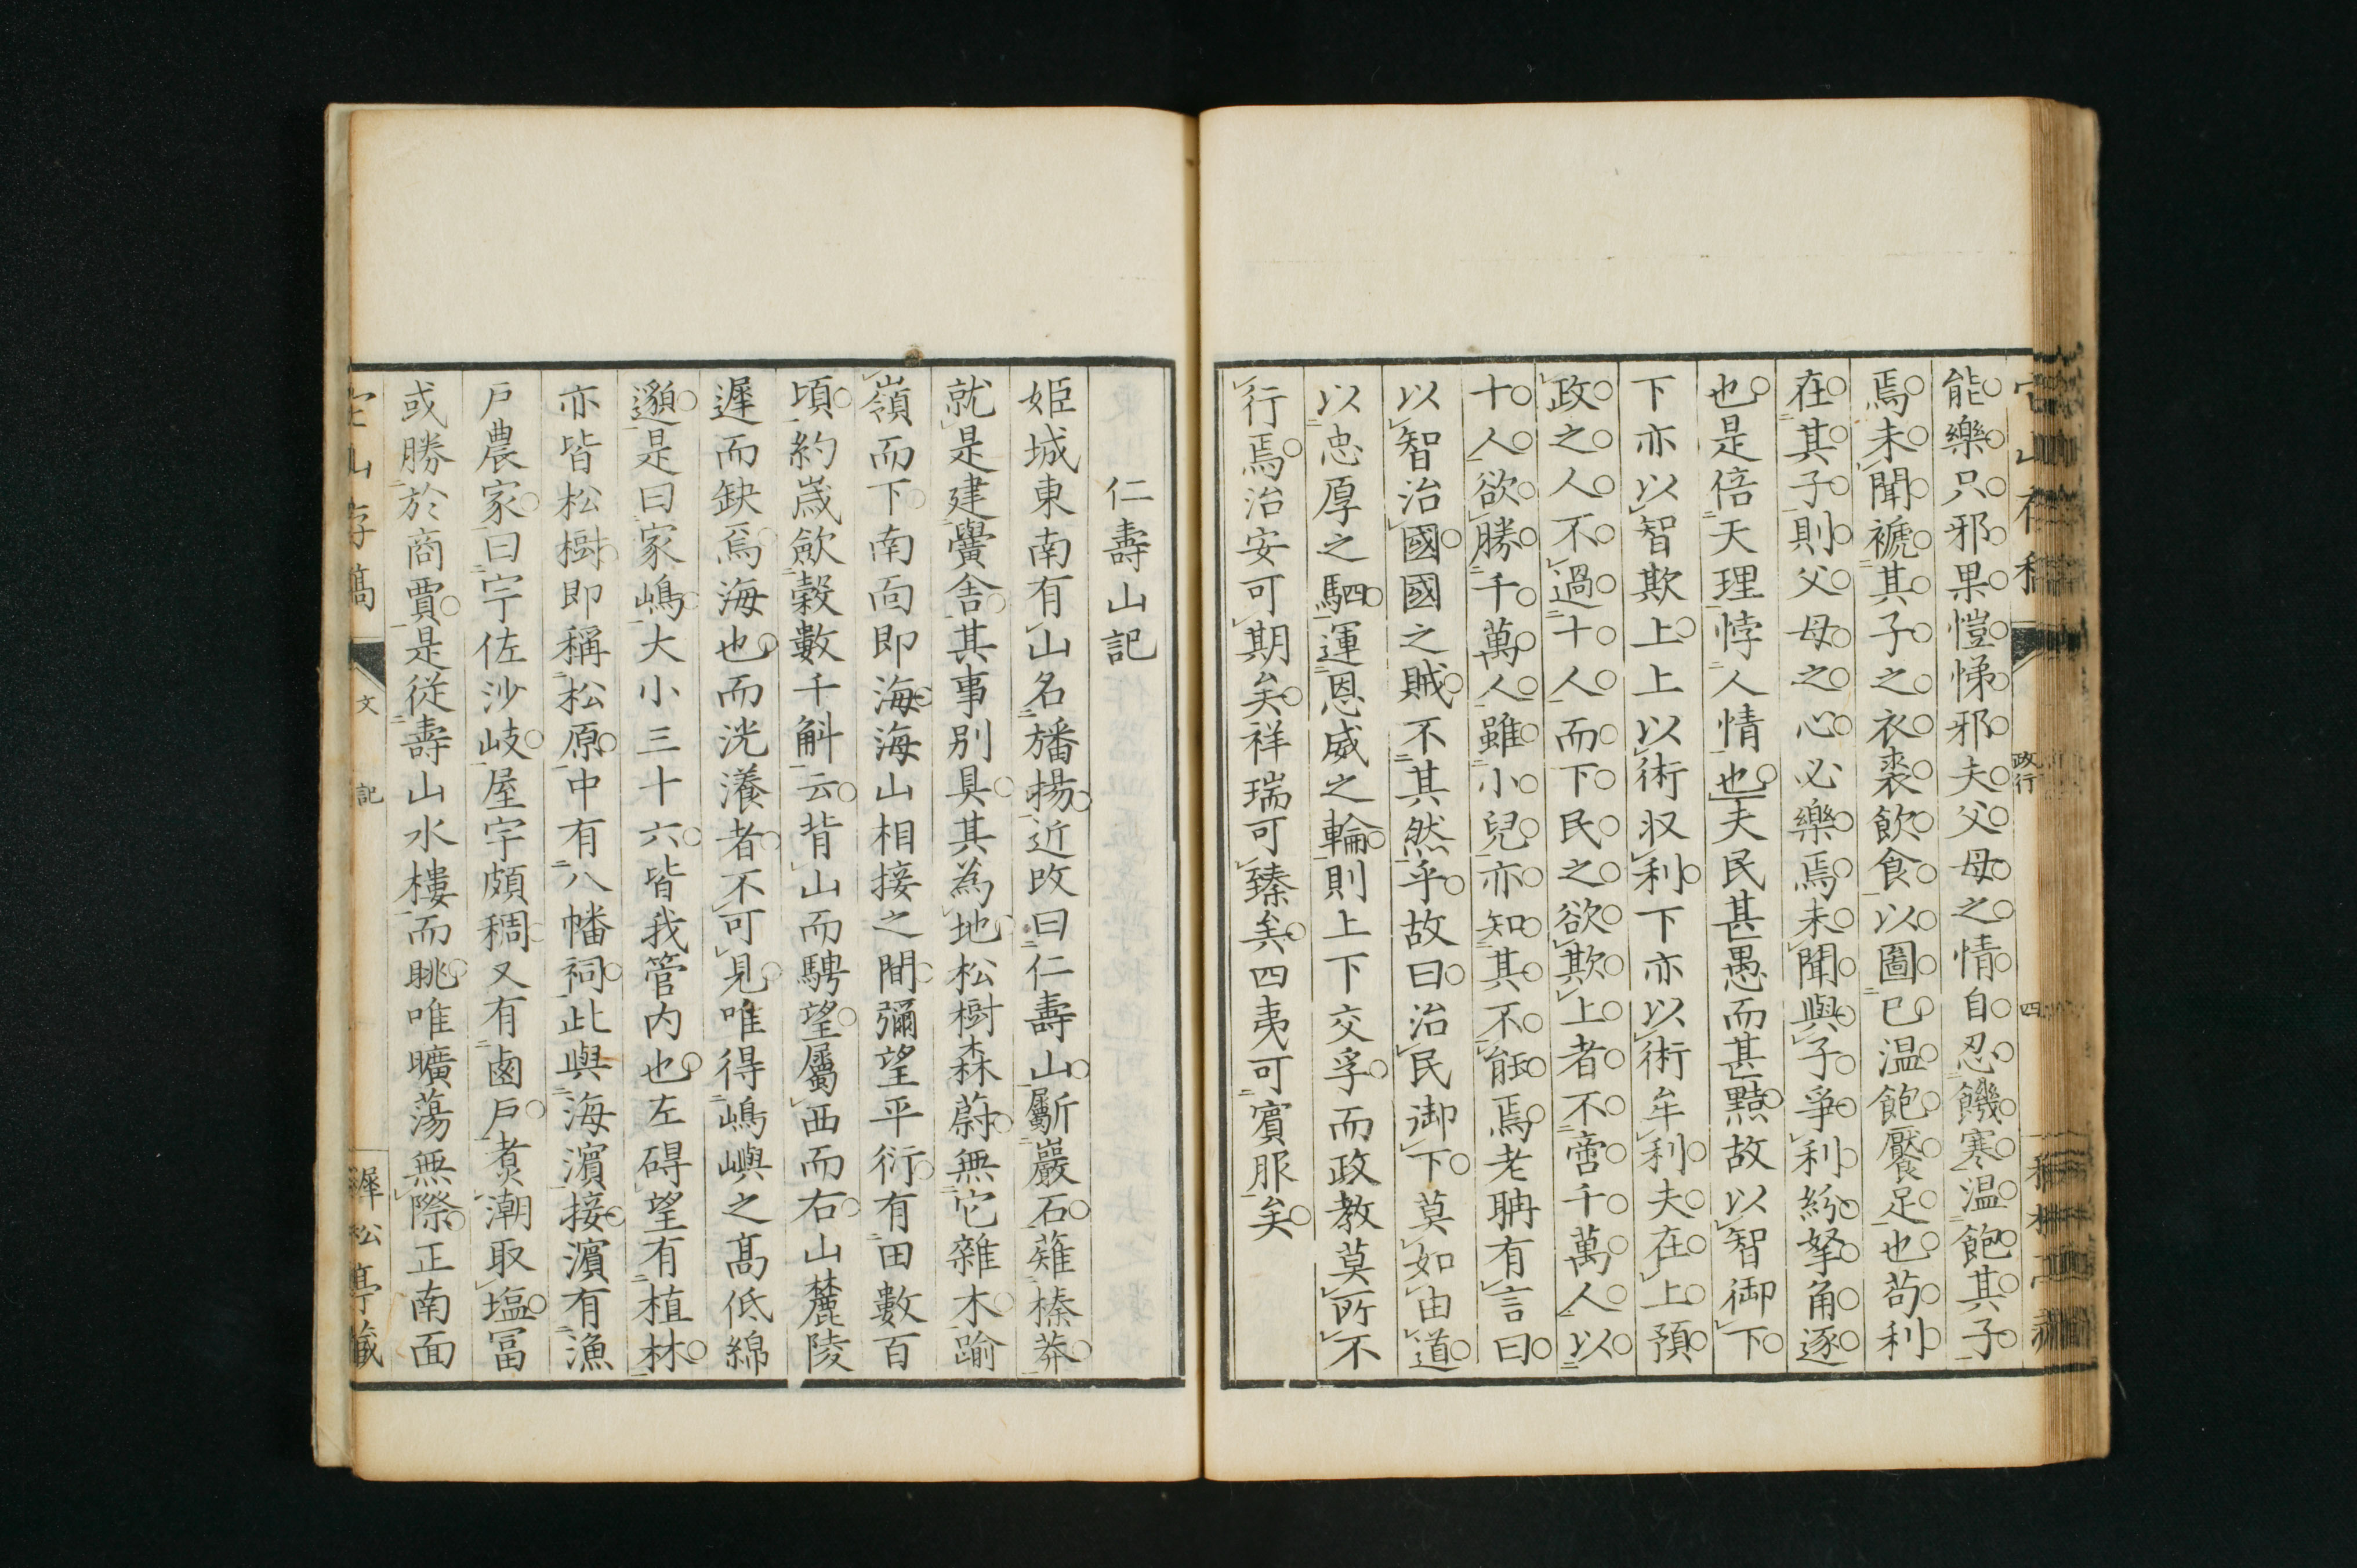 能樂只邪果愷悌邪夫父母之情自忍饑寒温飽其子
焉未聞褫其子之衣裘飲食以圖已温飽饜足也苟利
在其子則父母之心必樂焉未聞與子爭利紛拏角逐
也是倍天理悖人情也夫民甚愚而甚黠故以智御下
下亦以智欺上上以術収利下亦以術牟利夫在上預
政之人不過十人而下民之欲欺上者不啻千萬人以
十人欲勝千萬人雖小兒亦知其不能焉老聃有言曰
以智治國國之賊不其然乎故曰治民御下莫如由道
以忠厚之駟運恩威之輪則上下交孚而政教莫所不
行焉治安可期矣祥瑞可臻矣四夷可賓服矣
政行
四
仁壽山記
姫城東南有山名旛揚近改曰仁壽山斸巖石薙榛莽
就是建黌舎其事別具其為地松樹森蔚無它雜木踰
嶺而下南面即海海山相接之間彌望平衍有田數百
頃約歳歛穀數千斛云背山而騁望屬西而右山麓陵
遲而缺焉海也而洸瀁者不可見唯得嶋嶼之髙低綿
邈是曰家嶋大小三十六皆我管内也左碍望有植林
亦皆松樹即稱松原中有八幡祠此與海濱接濱有漁
戸農家曰宇佐沙岐屋宇頗稠又有鹵戸煑潮取塩冨
或勝於商賈是従壽山水樓而眺唯曠蕩無際正南面
山存稿
文
記
墀松亭藏